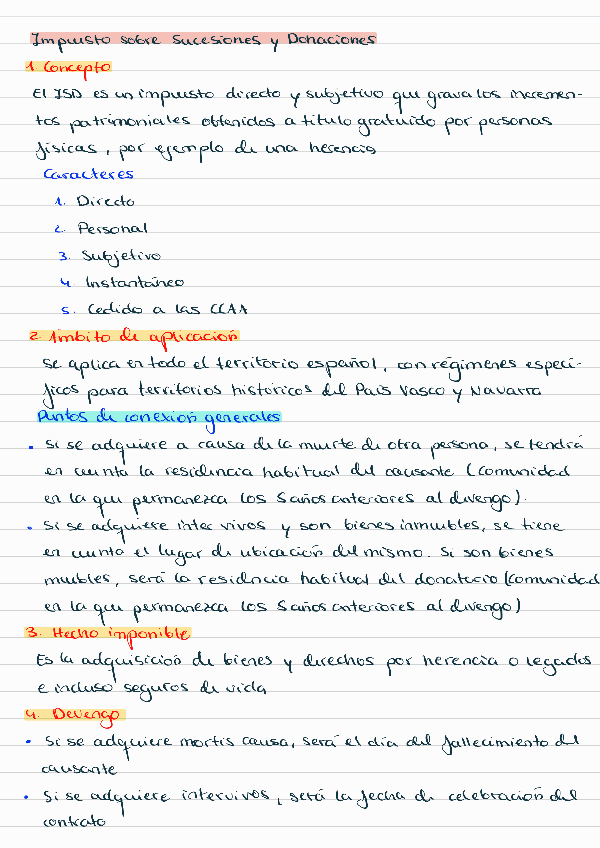 Impuesto sobre Sucesiones y Donaciones
1. Concepto
El ISD es un impuesto directo y subjetivo que grava los incremen-
tos patrimoniales obtenidos a título gratuido por personas
físicas, por ejemplo de una herencia
Caracteres
1. Directo
2. Personal
3. Subjetivo
4. Instantáneo
5. Cedido a las CCAA
2. Ámbito de aplicación
Se aplica en todo el territorio español, con regímenes especí-
ficos para territorios históricos del País Vasco y Navarra
Puntos de conexión generales
• Si se adquiere a causa de la muerte de otra persona, se tendrá
en cuenta la residencia habitual del causante (comunidad
en la que permanezca los 5 años anteriores al devengo).
• Si se adquiere inter vivos y son bienes inmuebles, se tiene
en cuenta el lugar de ubicación del mismo. Si son bienes
muebles, será la residencia habitual del donatario (comunidad
en la que permanezca los 5 años anteriores al devengo)
3. Hecho imponible
Es la adquisición de bienes y derechos por herencia o legados
e incluso seguros de vida
4. Devengo
• Si se adquiere mortis causa, será el día del fallecimiento del
causante
• Si se adquiere intervivos, será la fecha de celebración del
contrato